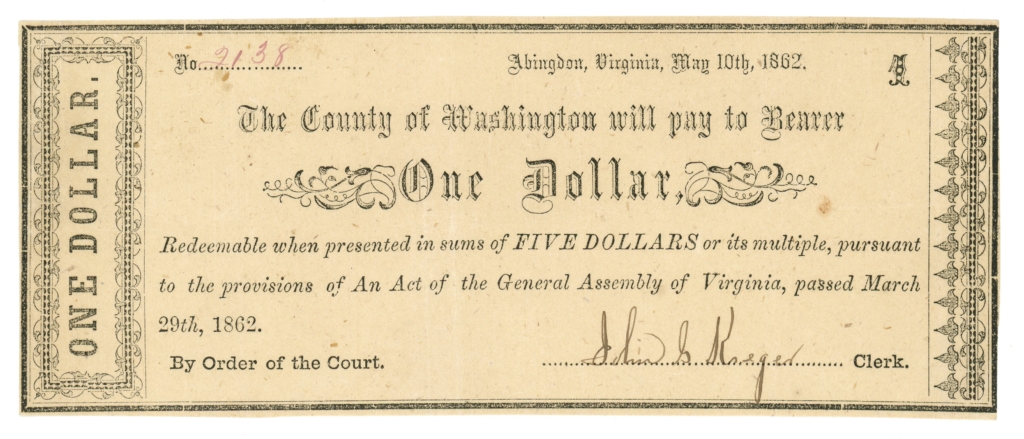 ONE DOLLAR.
No. 2138 Abingdon, Virginia, May 10th, 1862. 1
The County of Washington will pay to Bearer
One Dollar,
Redeemable when presented in sums of FIVE DOLLARS or its multiple, pursuant
to the provisions of An Act of the General Assembly of Virginia, passed March
29th, 1862.
By Order of the Court. John G Kreger Clerk.